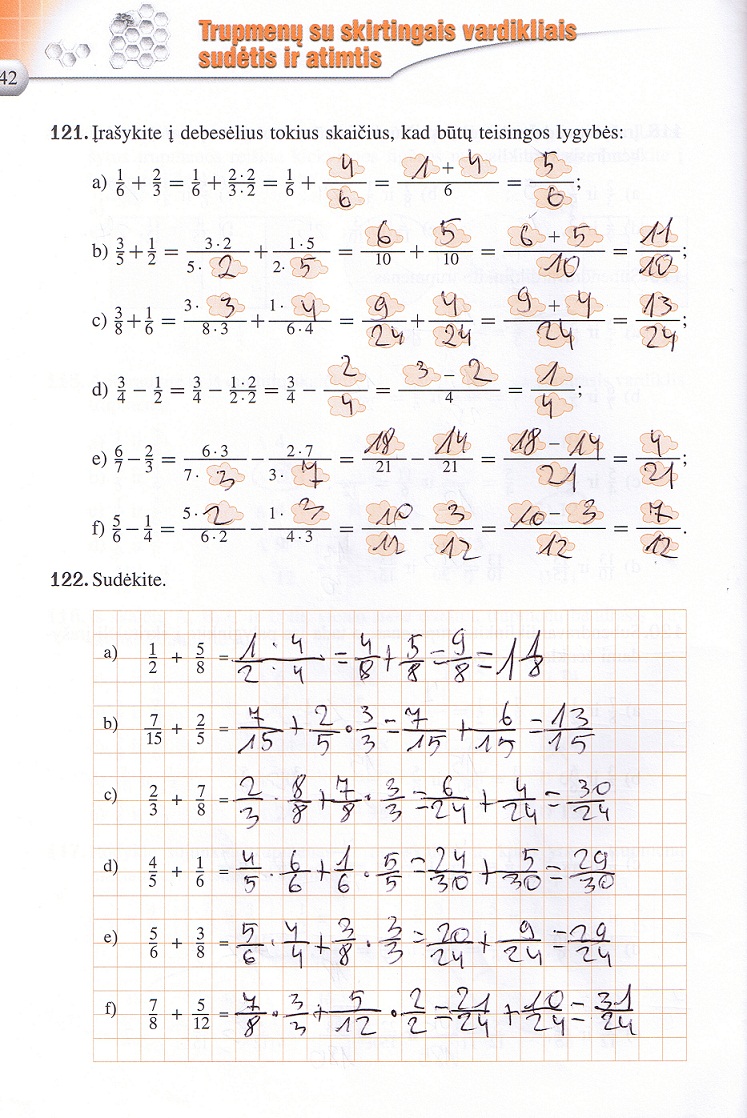 Trupmenų su skirtingais vardikliais
sudėtis ir atimtis
42
121. Įrašykite į debesėlius tokius skaičius, kad būtų teisingos lygybės:
a) 1/6 + 2/3 = 1/6 + 2·2/3·2 = 1/6 + 4/6 = 1 + 4/6 = 5/6;
b) 3/5 + 1/2 = 3·2/5·2 + 1·5/2·5 = 6/10 + 5/10 = 6 + 5/10 = 11/10;
c) 3/8 + 1/6 = 3·3/8·3 + 1·4/6·4 = 9/24 + 4/24 = 9 + 4/24 = 13/24;
d) 3/4 − 1/2 = 3/4 − 1·2/2·2 = 3/4 − 2/4 = 3 − 2/4 = 1/4;
e) 6/7 − 2/3 = 6·3/7·3 − 2·7/3·7 = 18/21 − 14/21 = 18 − 14/21 = 4/21;
f) 5/6 − 1/4 = 5·2/6·2 − 1·3/4·3 = 10/12 − 3/12 = 10 − 3/12 = 7/12.
122. Sudėkite.
a) 1/2 + 5/8 = 1·4/2·4 = 4/8 + 5/8 = 9/8 = 1 1/8
b) 7/15 + 2/5 = 7/15 + 2/5 · 3/3 = 7/15 + 6/15 = 13/15
c) 2/3 + 7/8 = 2/3 · 8/8 + 7/8 · 3/3 = 6/24 + 4/24 = 30/24
d) 4/5 + 1/6 = 4/5 · 6/6 + 1/6 · 5/5 = 24/30 + 5/30 = 29/30
e) 5/6 + 3/8 = 5/6 · 4/4 + 3/8 · 3/3 = 20/24 + 9/24 = 29/24
f) 7/8 + 5/12 = 7/8 · 3/3 + 5/12 · 2/2 = 21/24 + 10/24 = 31/24